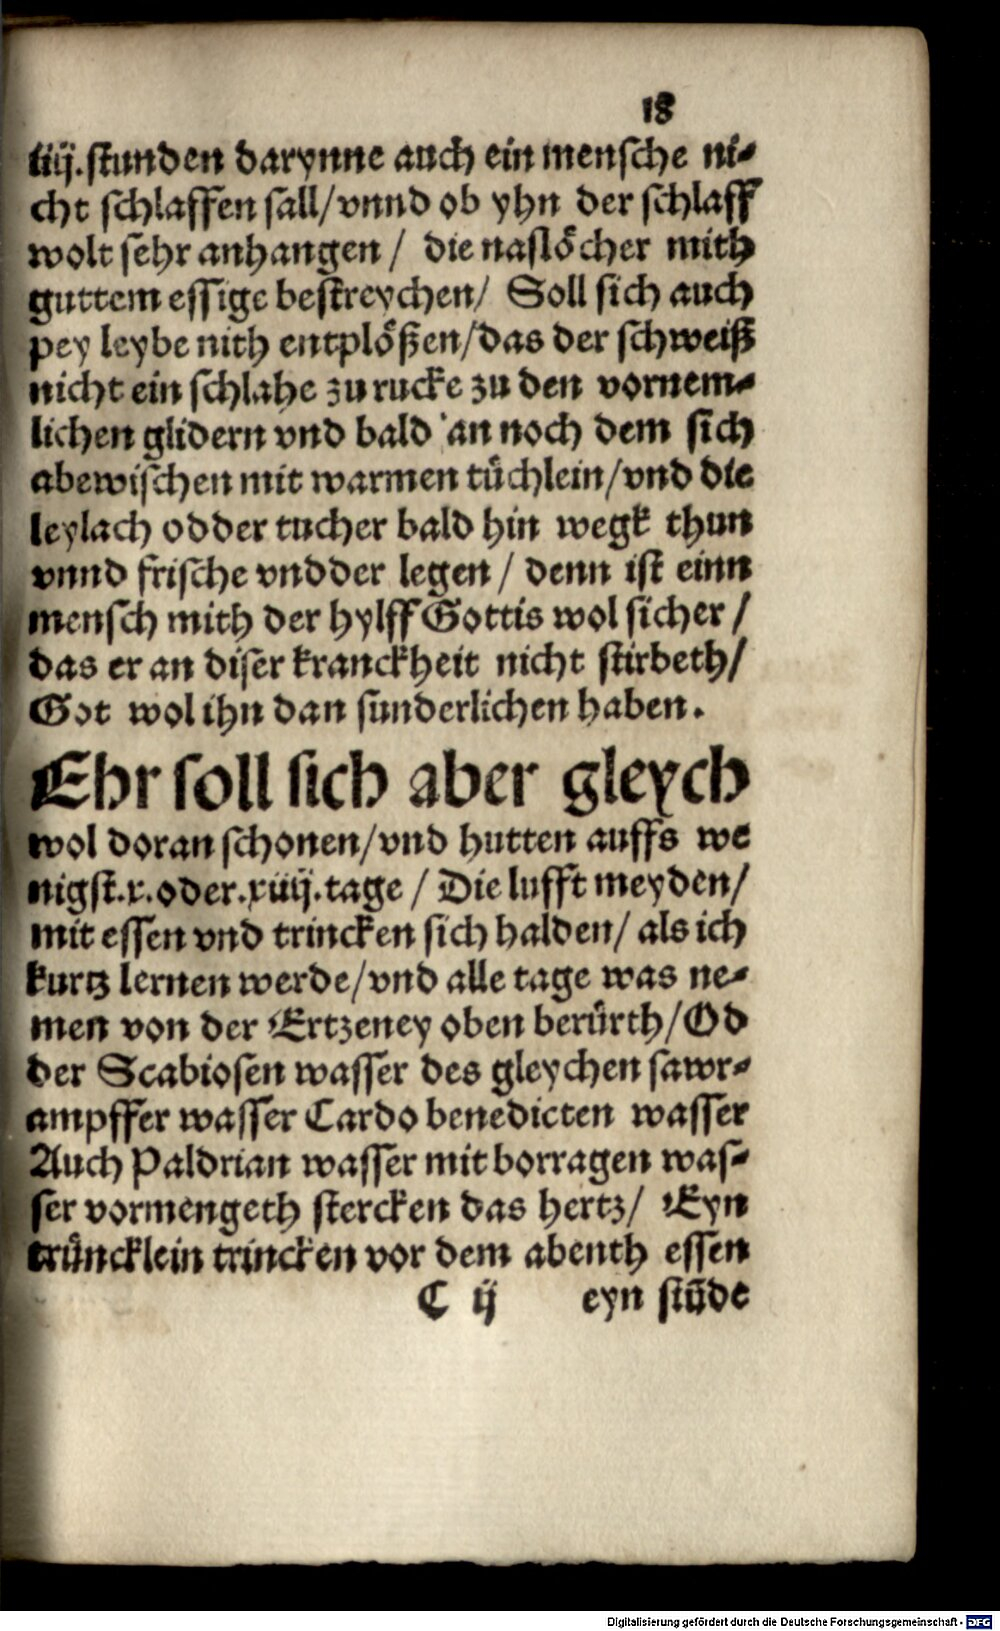 18
iiij. stunden darynne auch ein mensche ni-
cht schlaffen sall/vnnd ob yhn der schlaff
wolt sehr anhangen / die naslöcher mith
guttem essige bestreychen/ Soll sich auch
pey leybe nith entplößen/das der schweiß
nicht ein schlahe zu rucke zu den vornem-
lichen glidern vnd bald an noch dem sich
abewischen mit warmen tüchlein/vnd die
leylach odder tucher bald hin wegk thun
vnnd frische vndder legen / denn ist einn
mensch mith der hylff Gottis wol sicher /
das er an diser kranckheit nicht stirbeth/
Got wol ihn dan sunderlichen haben.
Ehr soll sich aber gleych
wol doran schonen/vnd hutten auffs we
nigst.x.oder.xiiij.tage / Die lufft meyden/
mit essen vnd trincken sich halden/ als ich
kurtz lernen werde/vnd alle tage was ne-
men von der Ertzeney oben berürth/Od
der Scabiosen wasser des gleychen sawr-
ampffer wasser Cardo benedicten wasser
Auch Paldrian wasser mit borragen was-
ser vormengeth stercken das hertz/ Eyn
trüncklein trincken vor dem abenth essen
C ij eyn stūde
Digitalisierung gefördert durch die Deutsche Forschungsgemeinschaft - DFG